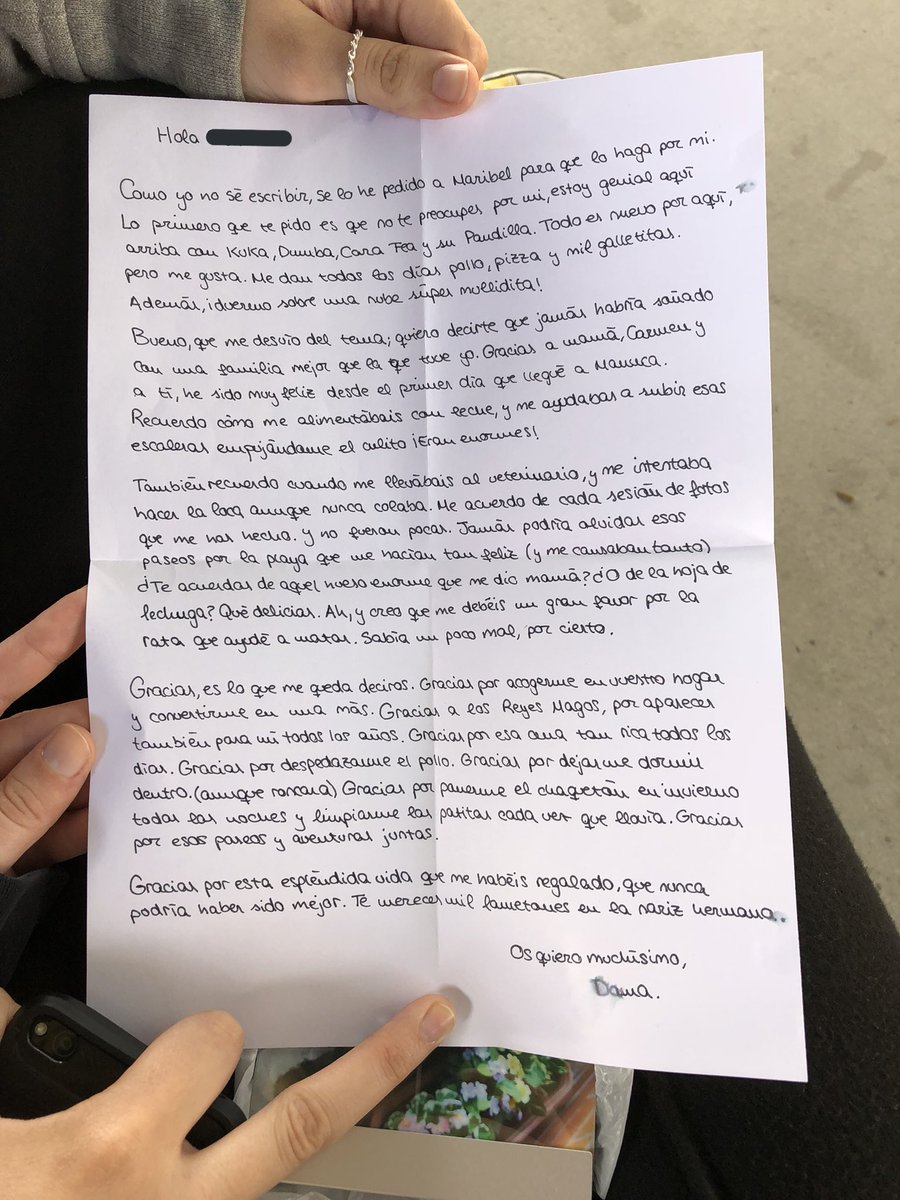 Hola
Como yo no sé escribir, se lo he pedido a Maribel para que lo haga por mi.
Lo primero que te pido es que no te preocupes por mi, estoy genial aquí
arriba con Kuka, Dumba, Cara Fea y su Pandilla. Todo es nuevo por aquí,
pero me gusta. Me dan todos los días pollo, pizza y mil galletitas.
Además, ¡duermo sobre una nube súper mullidita!
Bueno, que me desvío del tema; quiero decirte que jamás habría soñado
con una familia mejor que la que tuve yo. Gracias a mamá, Carmen y
a tí, he sido muy feliz desde el primer día que llegué a
Recuerdo cómo me alimentábais con leche, y me ayudabas a subir esas
escaleras empujándome el culito ¡Eran enormes!
También recuerdo cuando me llevábais al veterinario, y me intentaba
hacer la loca aunque nunca colaba. Me acuerdo de cada sesión de fotos
que me has hecho. y no fueron pocas. Jamás podría olvidar esos
paseos por la playa que me hacían tan feliz (y me cansaban tanto)
¿Te acuerdas de aquel hueso enorme que me dio mamá? ¿O de la hoja de
lechuga? Qué delicias. Ah, y creo que me debéis un gran favor por la
rata que ayudé a matar. Sabía un poco mal, por cierto.
Gracias, es lo que me queda deciros. Gracias por acogerme en vuestro hogar
y convertirme en una más. Gracias a los Reyes Magos, por aparecer
también para mi todos los años. Gracias por esa cena tan rica todos los
días. Gracias por despedazarme el pollo. Gracias por dejarme dormir
dentro. (aunque roncara) Gracias por ponerme el chaquetón en invierno
todas las noches y limpiarme las patitas cada vez que llovía. Gracias
por esos paseos y aventuras juntas.
Gracias por esta espléndida vida que me habéis regalado, que nunca
podría haber sido mejor. Te mereces mil lametones en la nariz hermana.
Os quiero muchísimo,
Dama.